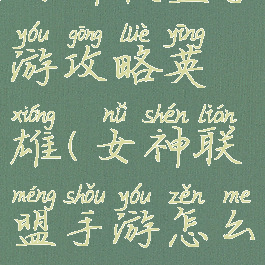 yóu gōng lüè yīng
游攻略英
xióng nǚ shén lián
雄(女神联
méng shǒu yóu zěn me
盟手游怎么